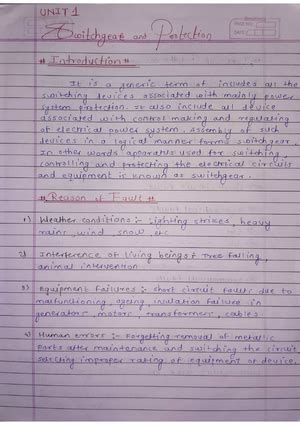 UNIT 1
Switchgear and Protection
# Introduction #
It is a generic term of includes all the
switching devices associated with mainly power
system protection. It also include all device
associated with control making and regulating
of electrical power system, assembly of such
devices in a logical manner forms switchgear.
In other words apparatus used for switching,
controlling and protecting the electrical circuits
and equipment is known as switchgear.
# Reason of Fault #
1) Weather conditions :- Lighting strikes, heavy
rains, wind, snow, etc
2) Interference of living beings :- Tree falling,
animal intervention
3) Equipment Failures :- Short circuit faults due to
malfunctioning, ageing, insulation failure in
generators, motors, transformer, cables
4) Human errors :- Forgetting removal of metallic
Parts after maintenance and switching the circuit
selecting improper rating of equipment of device.